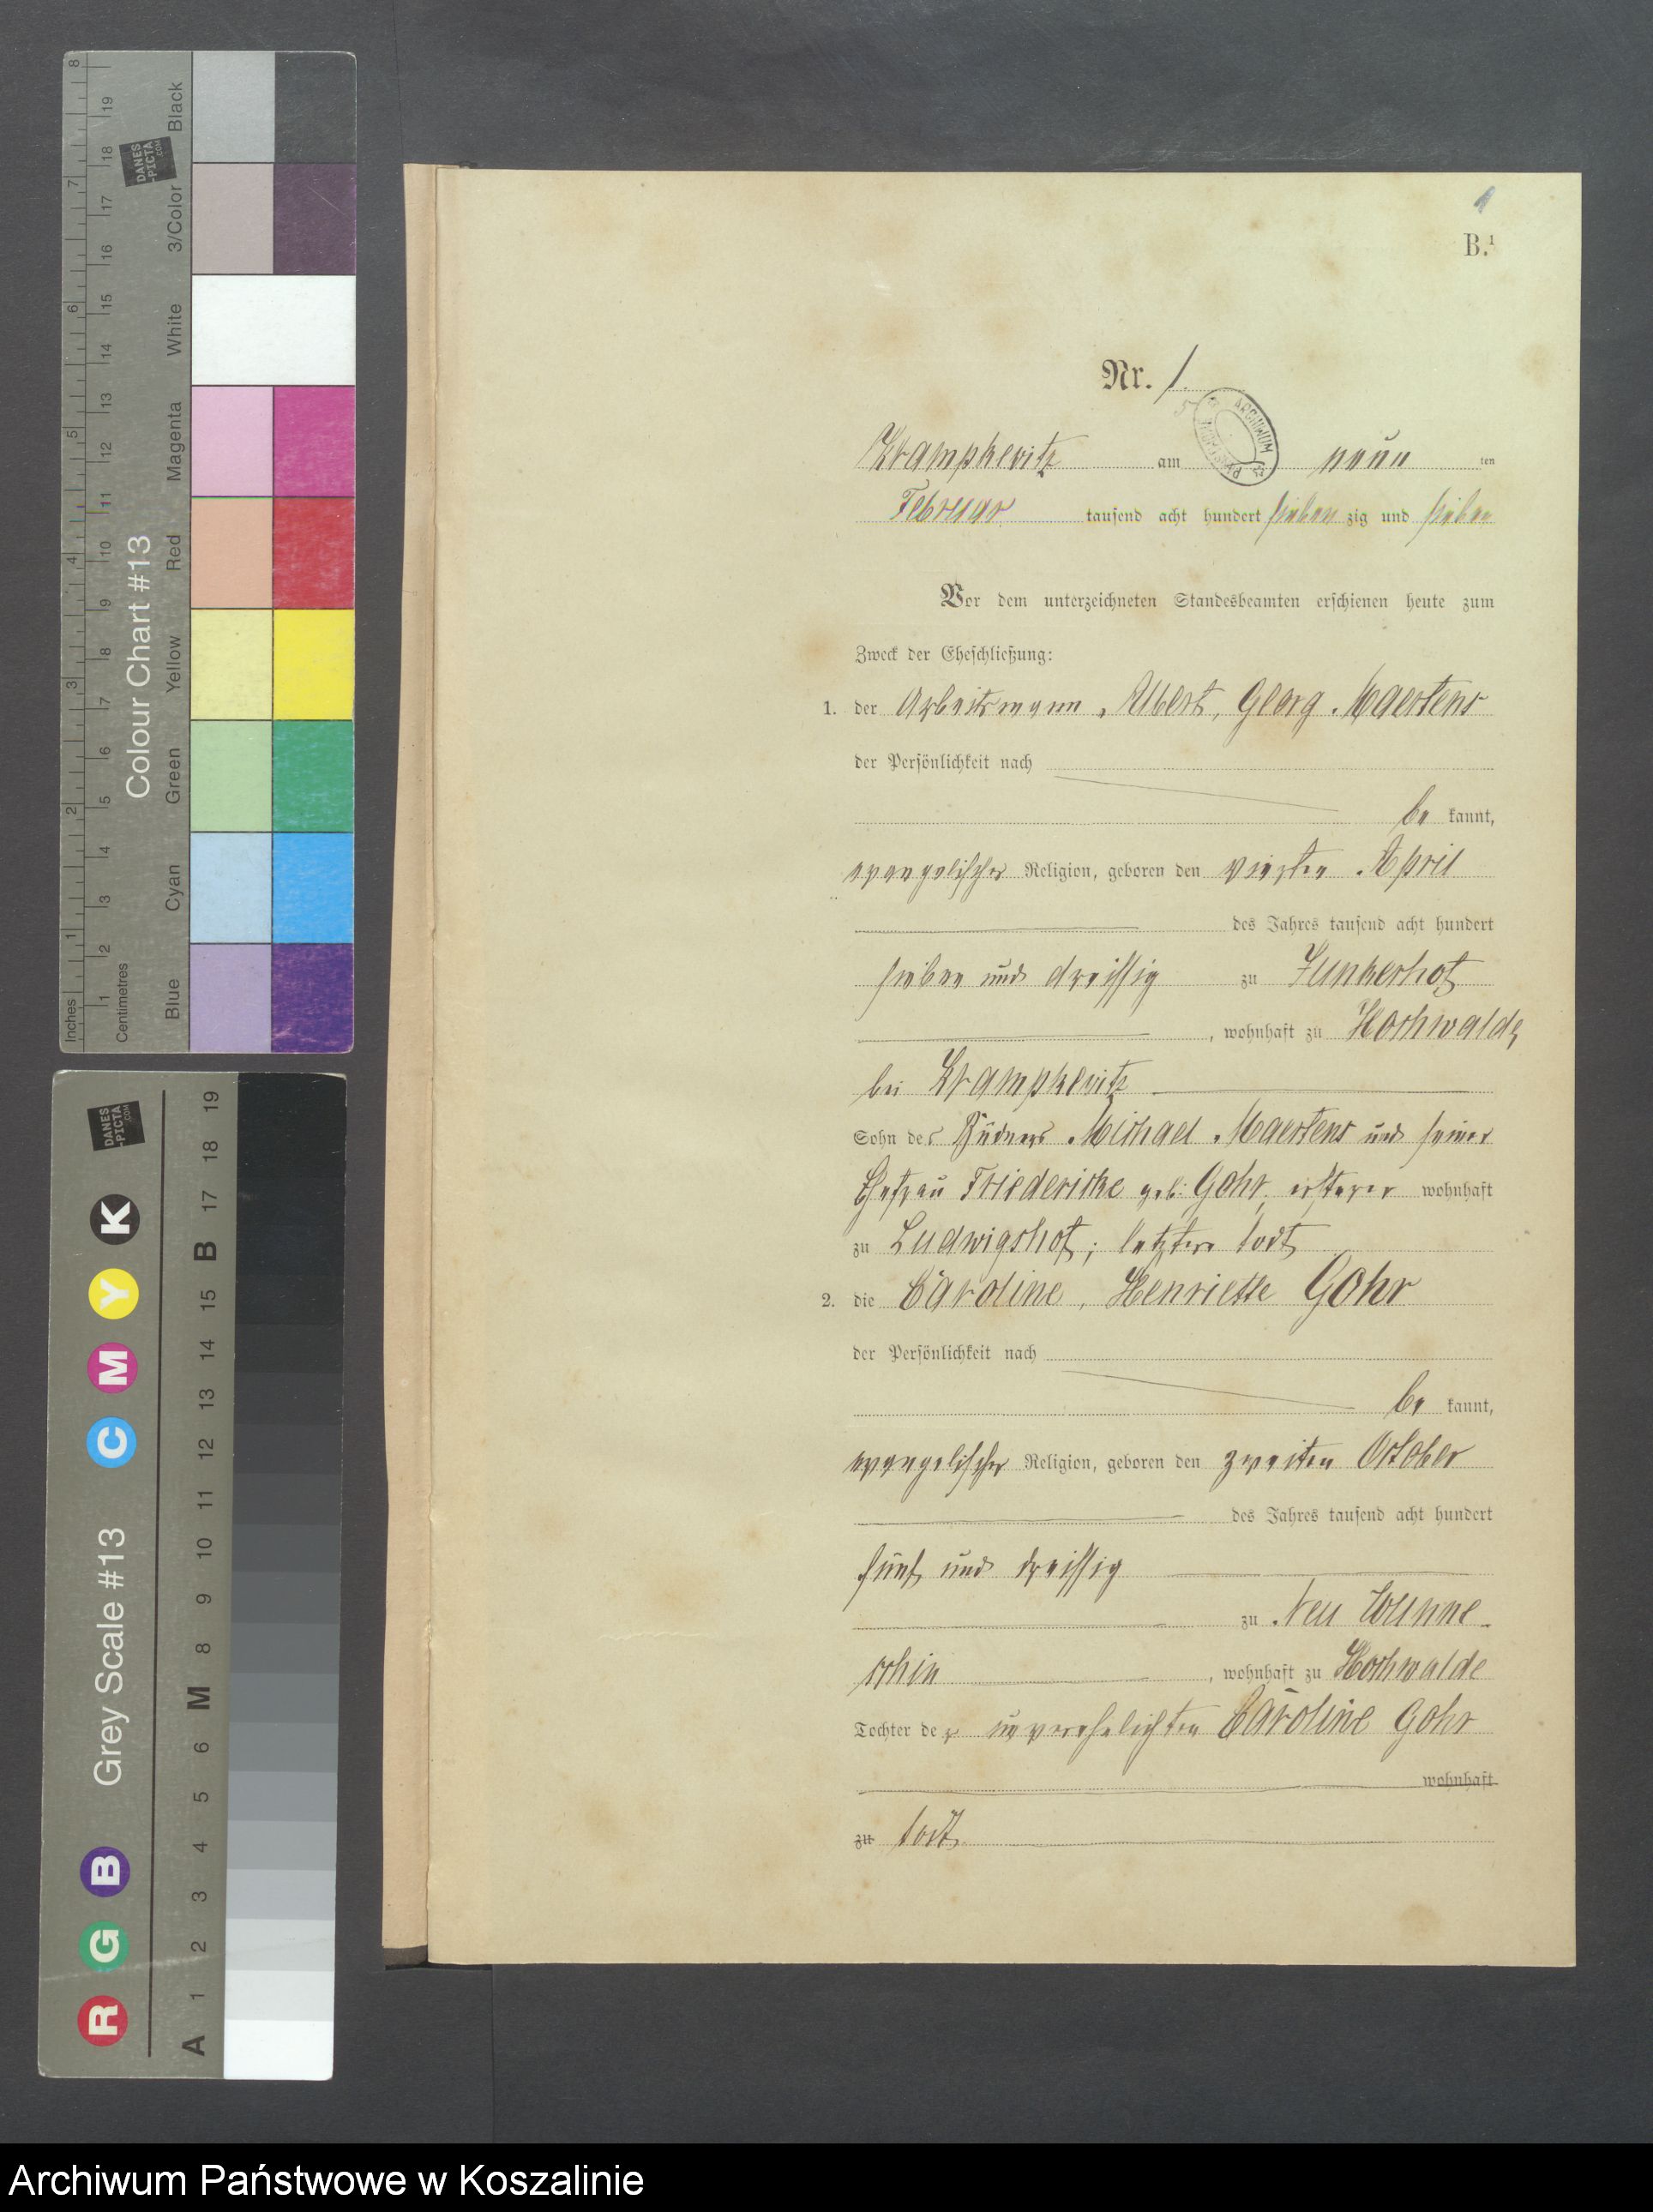 1
B.¹
Nr. 1.
Krampkewitz am neun ten
Februar tausend acht hundert sieben zig und sieben
Vor dem unterzeichneten Standesbeamten erschienen heute zum
Zweck der Eheschließung:
1. der Arbeitsmann Albert, Georg Maertens
der Persönlichkeit nach
be kannt,
evangelischer Religion, geboren den vierten April
des Jahres tausend acht hundert
sieben und dreissig zu Junkerhof
, wohnhaft zu Hochwalde,
bei Krampkewitz
Sohn des Büdners Michael Maertens und seiner
Ehefrau Friedericke geb. Gohr, ersterer wohnhaft
zu Ludwigshof; letztere todt
2. die Caroline, Henriette Gohr
der Persönlichkeit nach
be kannt,
evangelischer Religion, geboren den zweiten October
des Jahres tausend acht hundert
fünf und dreissig
zu Neu Wunne-
schin, wohnhaft zu Hochwalde
Tochter der unverehelichten Caroline Gohr
wohnhaft
zu todt.
ARCHIWUM
Colour Chart #13
Inches 1 2 3 4 5 6 7 8
Centimetres 1 2 3 4 5 6 7 8 9 10 11 12 13 14 15 16 17 18 19
Blue Cyan Green Yellow Red Magenta White 3/Color Black
DANES
-PICTA
.COM
Grey Scale #13
R G B C M Y K
A 1 2 3 4 5 6 M 8 9 10 11 12 13 14 15 B 17 18 19
DANES
-PICTA
.COM
Archiwum Państwowe w Koszalinie